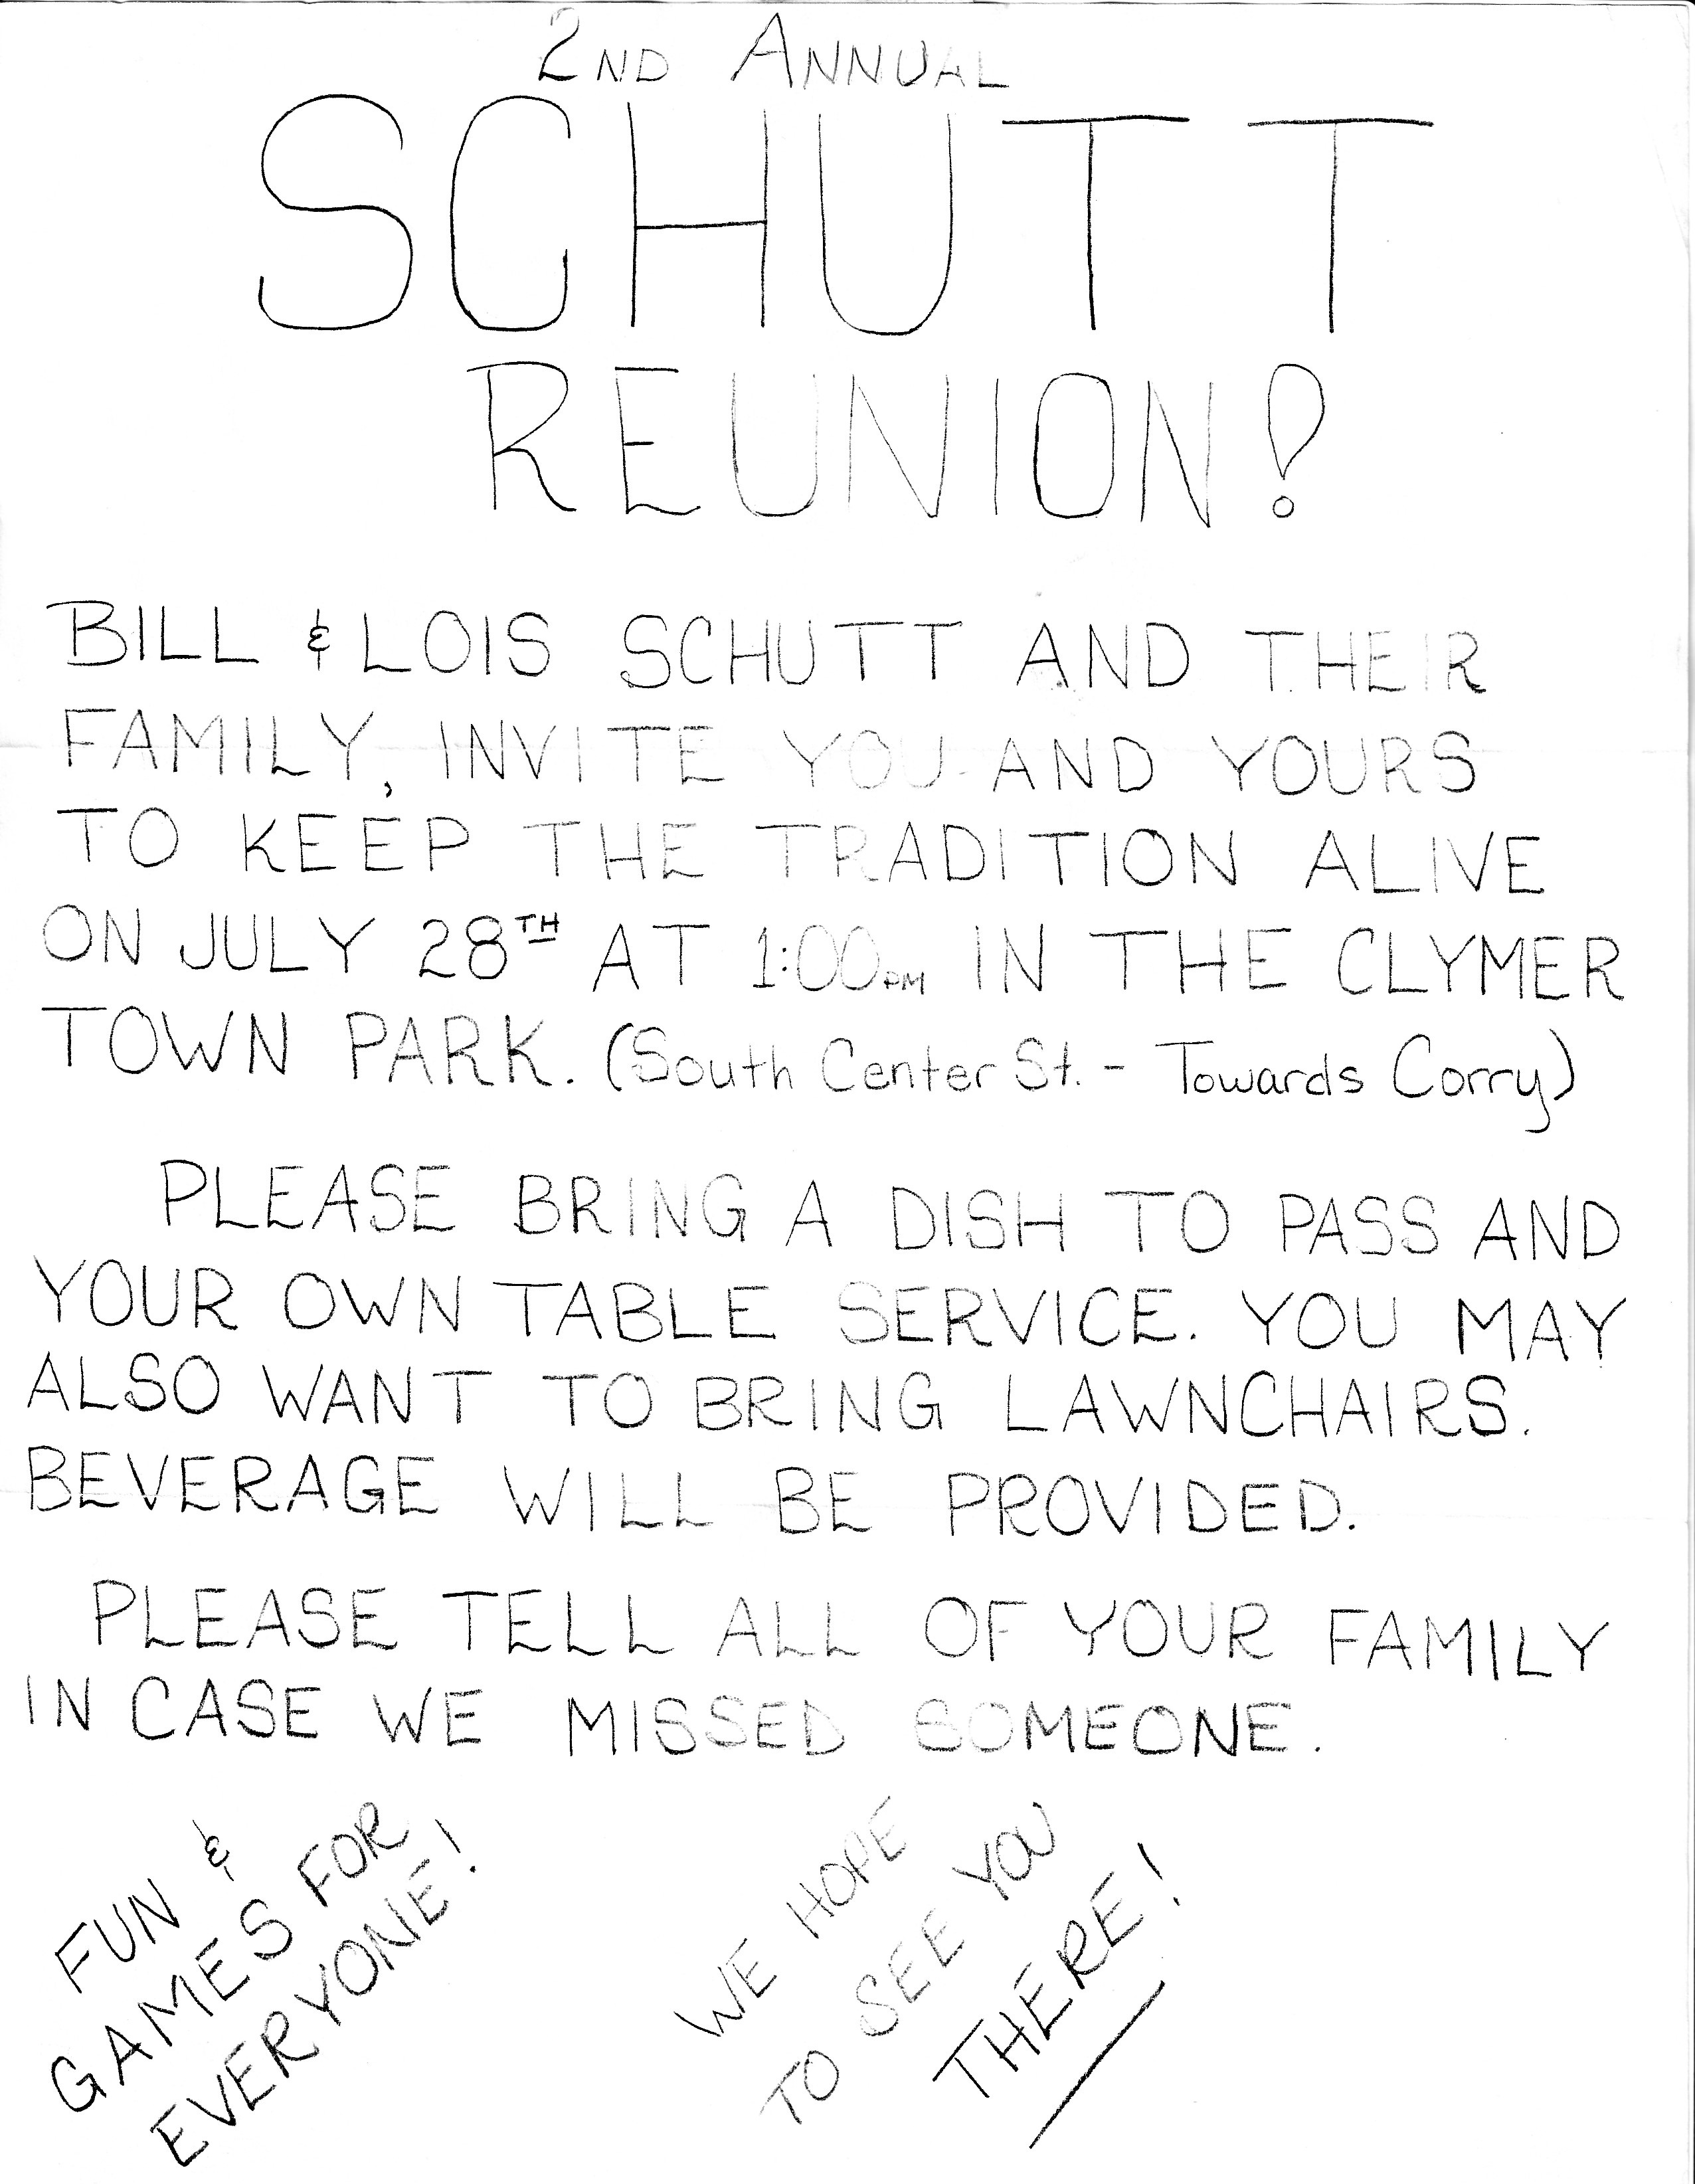 2ND ANNUAL
SCHUTT
REUNION!
BILL & LOIS SCHUTT AND THEIR
FAMILY, INVITE YOU AND YOURS
TO KEEP THE TRADITION ALIVE
ON JULY 28TH AT 1:00PM IN THE CLYMER
TOWN PARK. (South Center St. - Towards Corry)
PLEASE BRING A DISH TO PASS AND
YOUR OWN TABLE SERVICE. YOU MAY
ALSO WANT TO BRING LAWNCHAIRS.
BEVERAGE WILL BE PROVIDED.
PLEASE TELL ALL OF YOUR FAMILY
IN CASE WE MISSED SOMEONE.
FUN &
GAMES FOR
EVERYONE!
WE HOPE
TO SEE YOU
THERE!